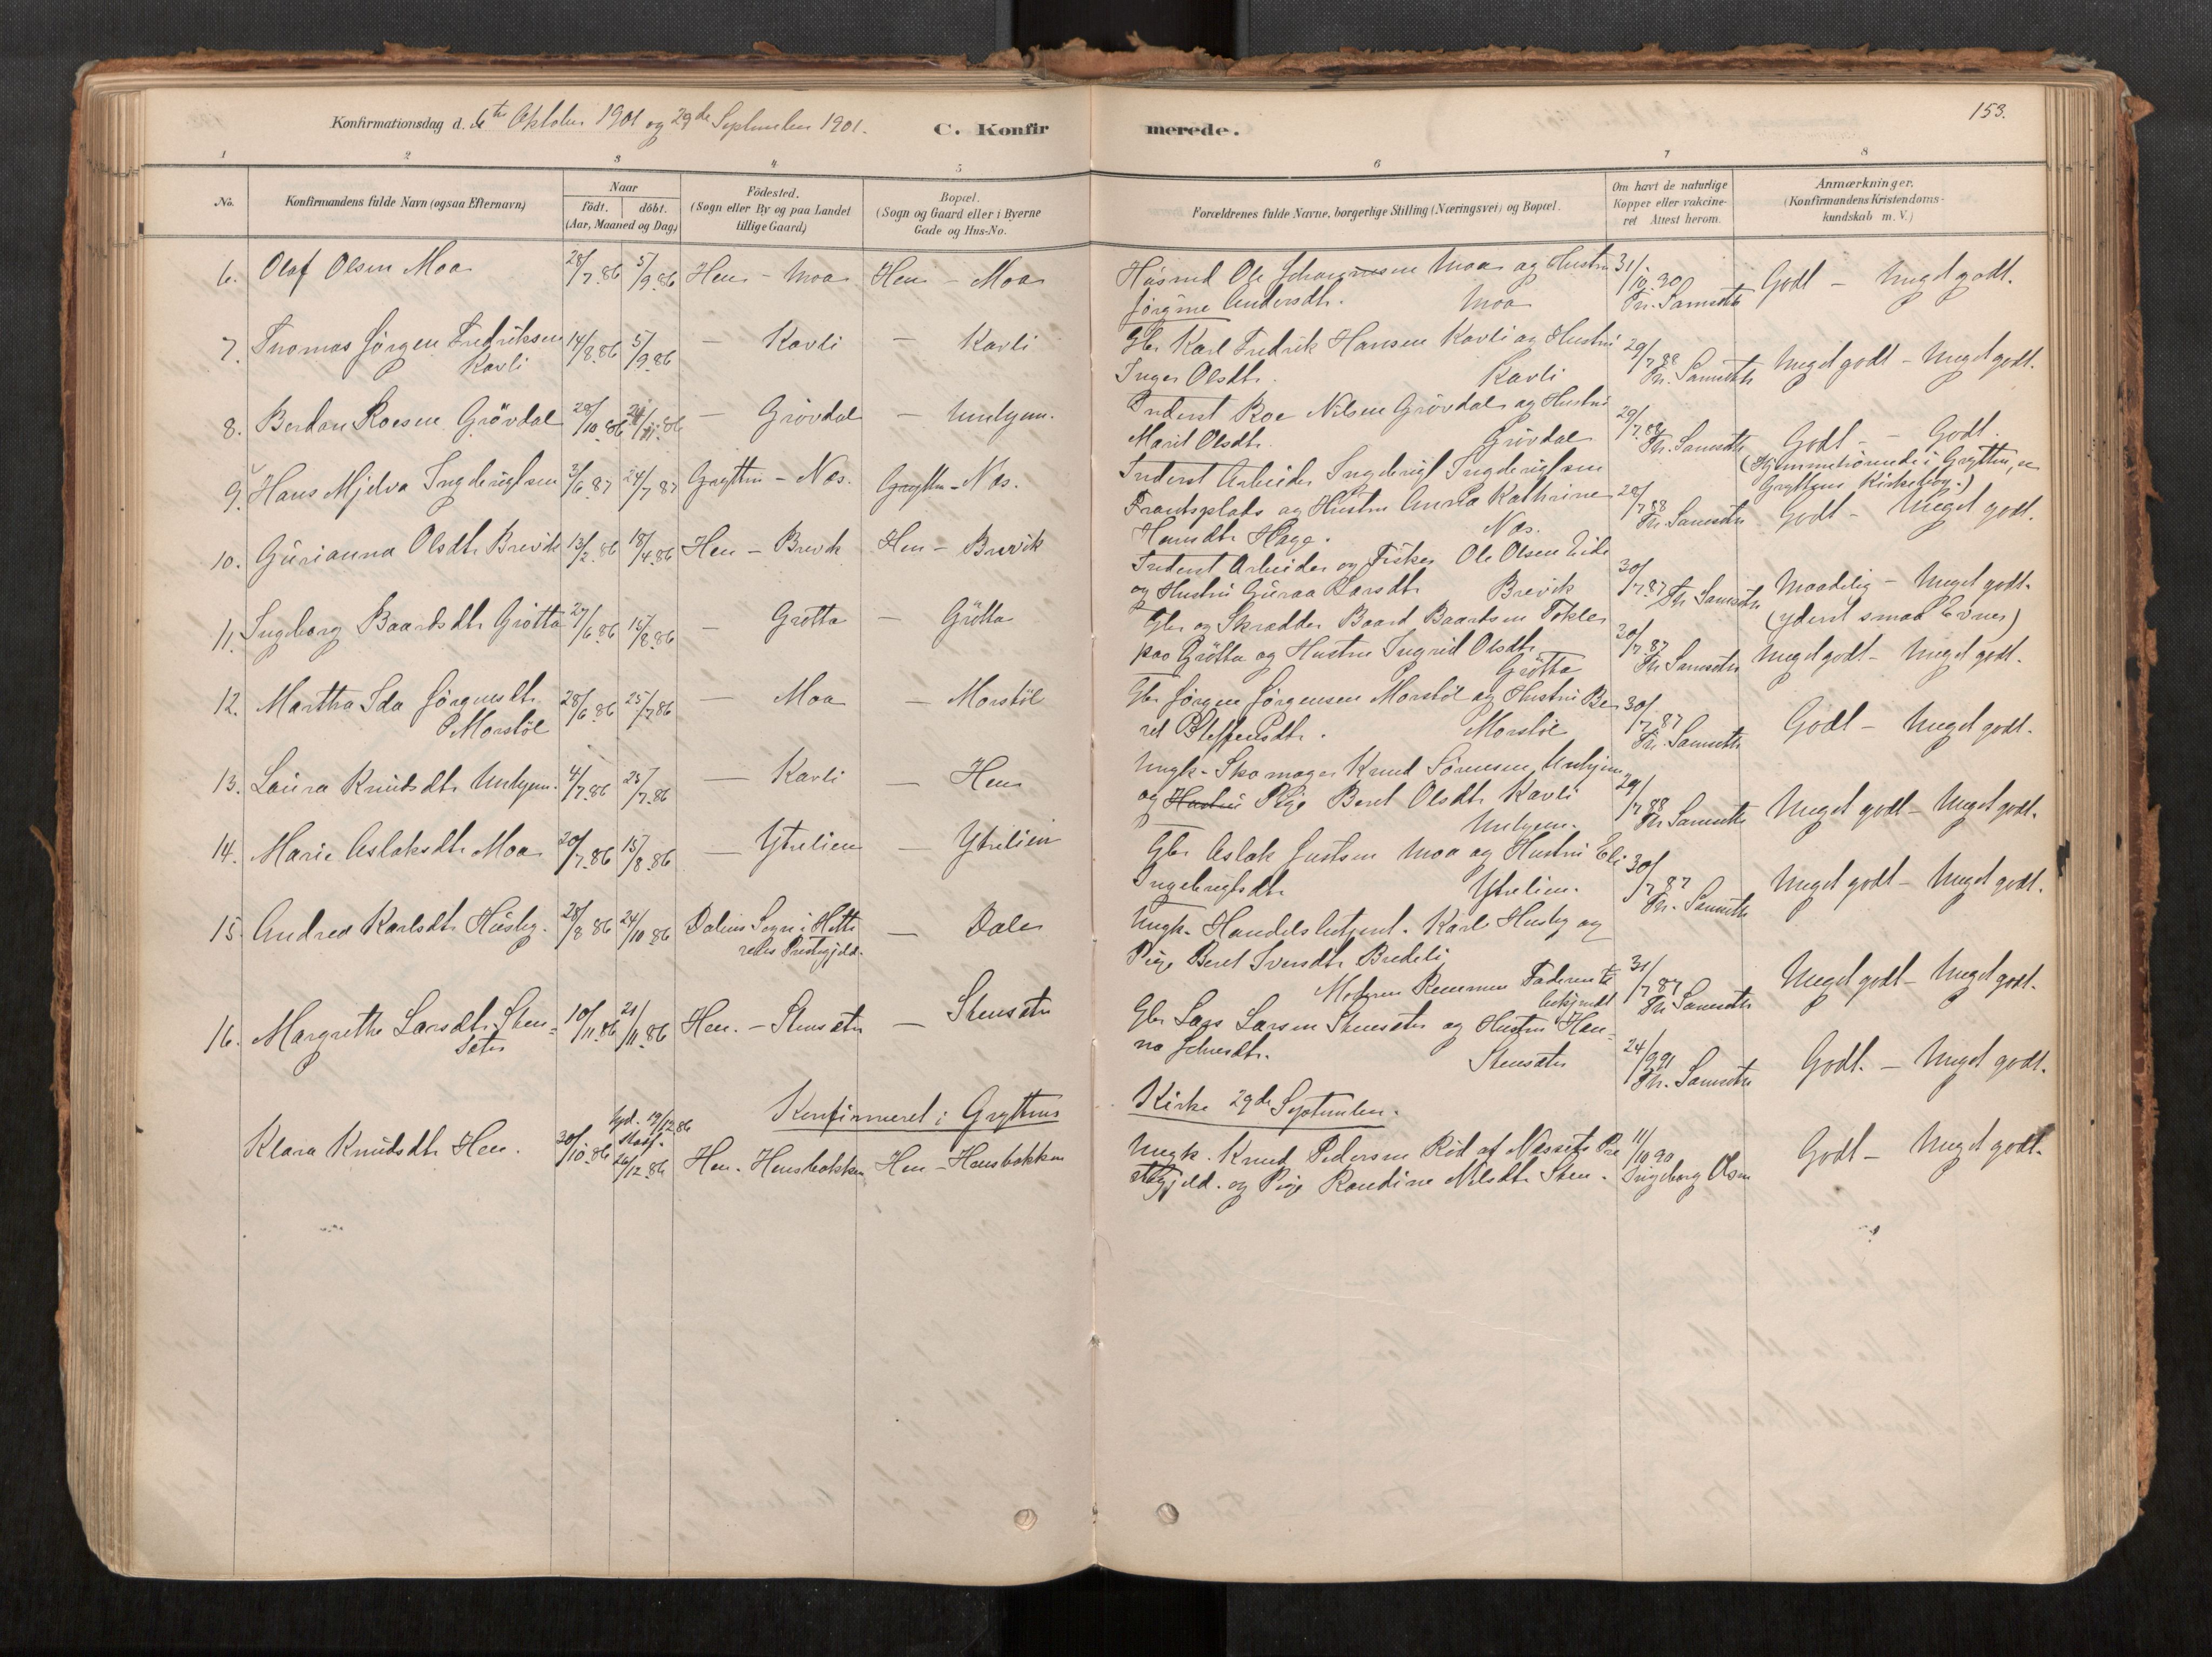 153.
Konfirmationsdag d. 6te Oktober 1901 og 29de September 1901. C. Konfirmerede.
1 2 3 4 5 6 7 8
No. Konfirmandens fulde Navn (ogsaa Efternavn) Naar födt. döbt. (Aar, Maaned og Dag) Födested. (Sogn eller By og paa Landet tillige Gaard) Bopæl. (Sogn og Gaard eller i Byerne Gade og Hus-No. Forældrenes fulde Navne, borgerlige Stilling (Næringsvei) og Bopæl. Om havt de naturlige Kopper eller vakcineret Attest herom. Anmærkninger. (Konfirmandens Kristendomskundskab m. V.)
6. Olaf Olsen Moa 28/7.86 5/9.86 Hen - Moa Hen - Moa Husmd Ole Moa og Hustru 31/10.90 Godt - Meget godt.
Jørgine Andersdtr. Moa Th. Samseth
7. Thomas Jörgen Fredriksen 14/8.86 5/9.86 — Kavli — Kavli Gbr Karl Fredrik Hansen Kavli og Hustru 29/7.88 Meget godt - Meget godt.
Kavli Inger Olsdtr. Kavli Th. Samseth
8. Berdon Roesen Grövdal 28/10.86 21/11.86 — Grövdal — Unhjem. Inderst Roe Nilsen Grövdal og Hustru 29/7.88
Marit Olsdtr. Grövdal Th. Samseth Godt - Godt.
9. Hans Mjelva Ingebrigtsen 3/6.87 24/7.87 Grytten - Næs. Grytten - Næs. Inderst Arbeider Ingebrigt Ingebrigtsen (Hjemmehörende i Grytten, se
Frantsplads og Hustru Anna Kathrine 28/7.88 Gryttens Kirkebog.)
Hansdtr Hage. Næs. Th. Samseth Godt - Meget godt.
10. Gurianna Olsdtr Brevik 13/2.86 18/4.86 Hen - Brevik Hen - Brevik Inderst Arbeider og Fisker Ole Olsen Eide 30/7.87
og Hustru Guraa Larsdtr Brevik Th. Samseth Maadelig - Meget godt.
(yderst smaa Evner)
11. Ingeborg Baardsdtr Grötta 27/6.86 15/8.86 — Grötta — Grötta Gbr og Skrædder Baard Baardsen Tokle 30/7.87
paa Grötta og Hustru Ingrid Olsdtr Grötta Th. Samseth Meget godt - Meget godt.
12. Martha Ida Jörgensdtr 28/6.86 25/7.86 — Moa — Morstöl Gbr Jörgen Jörgensen Morstöl og Hustru Be- 30/7.87
Morstöl ret Steffensdtr. Morstöl Th. Samseth Godt - Meget godt.
13. Laura Knudsdtr Unhjem. 4/7.86 25/7.86 — Kavli — Hen Ungk. Skomager Knud Sörensen Unhjem
og Hustru Pige Beret Olsdtr Kavli 29/7.88
Unhjem. Th. Samseth Meget godt - Meget godt.
14. Marie Aslaksdtr Moa 20/7.86 15/8.86 — Ytrelien — Ytrelien Gbr Aslak Justsen Moa og Hustru Eli 30/7.87
Ingebrigtsdtr Ytrelien. Th. Samseth Meget godt - Meget godt.
15. Andrea Karlsdtr Husby. 28/8 86 24/10.86 Dalens Sogn i Hitterens Prestegjeld. — Dale Ungk. Handelsbetjent. Karl Husby og
Pige Beret Iversdtr Bredeli 31/7.87
Moderen Faderen ubekjendt Th Samseth Meget godt - Meget godt.
16. Margrethe Larsdtr Sten- 10/11.86 21/11.86 Hen. - Stensæter — Stensæter Gbr Lars Larsen Stensæter og Hustru Han-
sæter na Johnsdtr. Stensæter 24/9.91 Th. Samseth Godt. - Meget godt.
Konfirmeret i Gryttens Kirke 29de September.
Klara Knudsdtr Hen. 30/10.86 hjd. 19/12.86 Stadf. 26/12.86 Hen. Hensbakken Hen - Hensbakken Ungk. Knud Pedersen Röd af Næssets Pre- 11/10 90 Godt - Meget godt.
stegjeld. og Pige Randine Nilsdtr Sten. Ingeborg Olsen